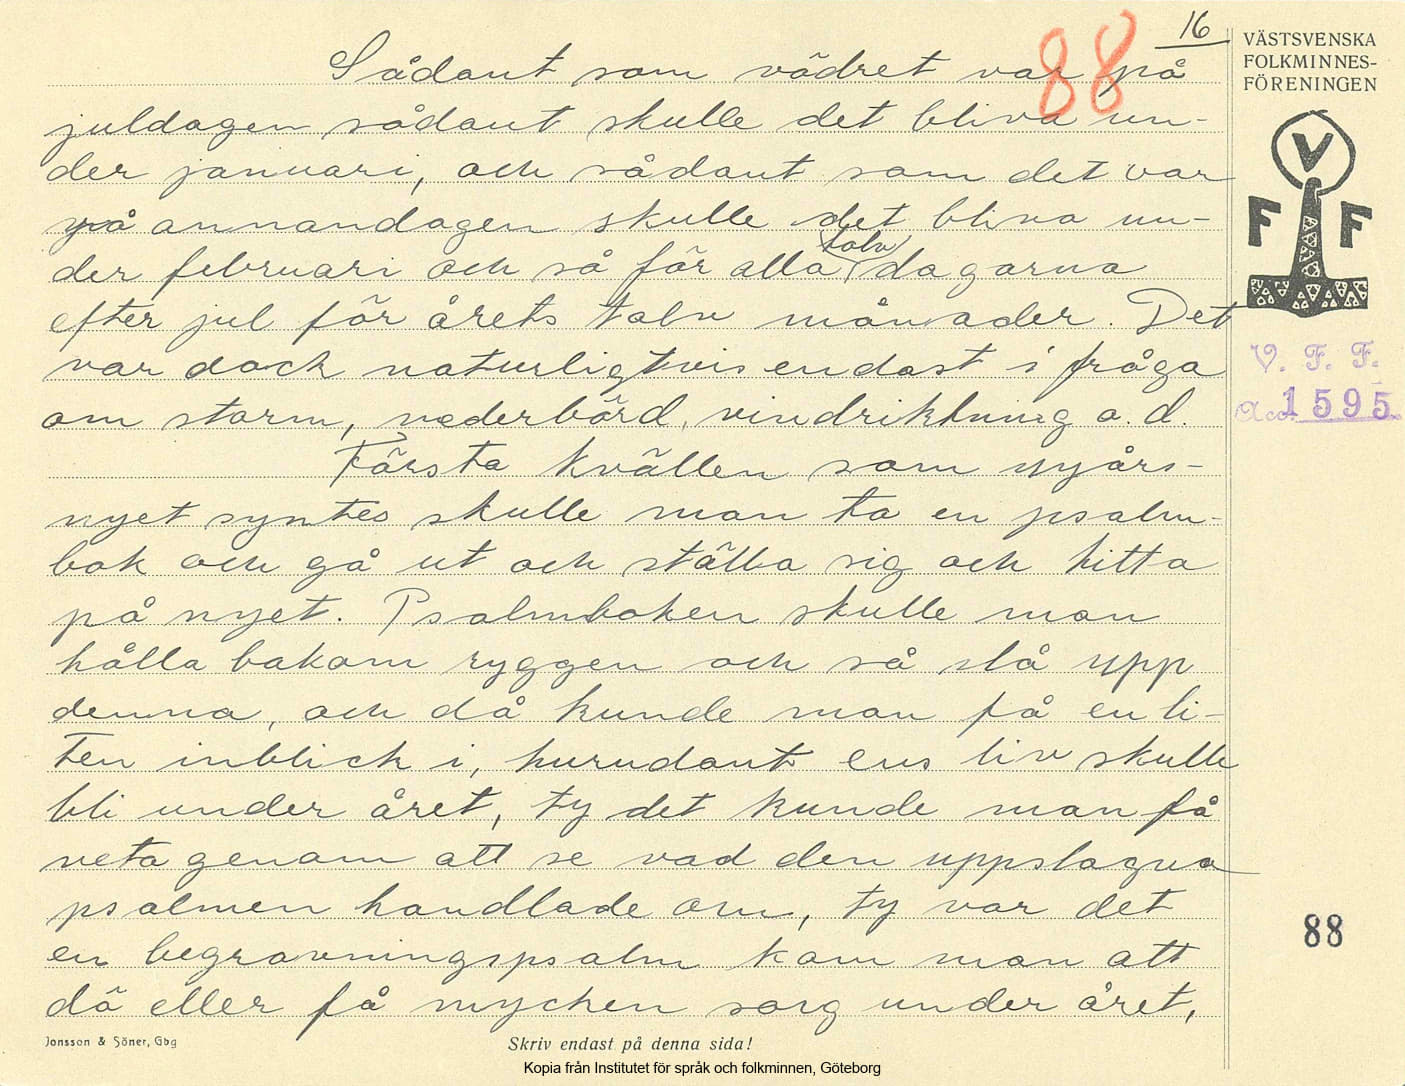 16
88
VÄSTSVENSKA
FOLKMINNES-
FÖRENINGEN
V
F F
V. F. F.
Acc. 1595
Sådant som vädret var på
juldagen sådant skulle det bliva un-
der januari, och sådant som det var
på annandagen skulle det bliva un-
der februari och så för alla tolv dagarna
efter jul för årets tolv månader. Det
var dock naturligtvis endast i fråga
om storm, nederbörd, vindriktning o. d.
Första kvällen som nyårs-
nyet syntes skulle man ta en psalm-
bok och gå ut och ställa sig och titta
på nyet. Psalmboken skulle man
hålla bakom ryggen och så slå upp
denna, och då kunde man få en li-
ten inblick i, hurudant ens liv skulle
bli under året, ty det kunde man få
veta genom att se vad den uppslagna
psalmen handlade om, ty var det
en begravningspsalm kom man att
dö eller få mycken sorg under året,
88
Jonsson & Söner, Gbg
Skriv endast på denna sida!
Kopia från Institutet för språk och folkminnen, Göteborg